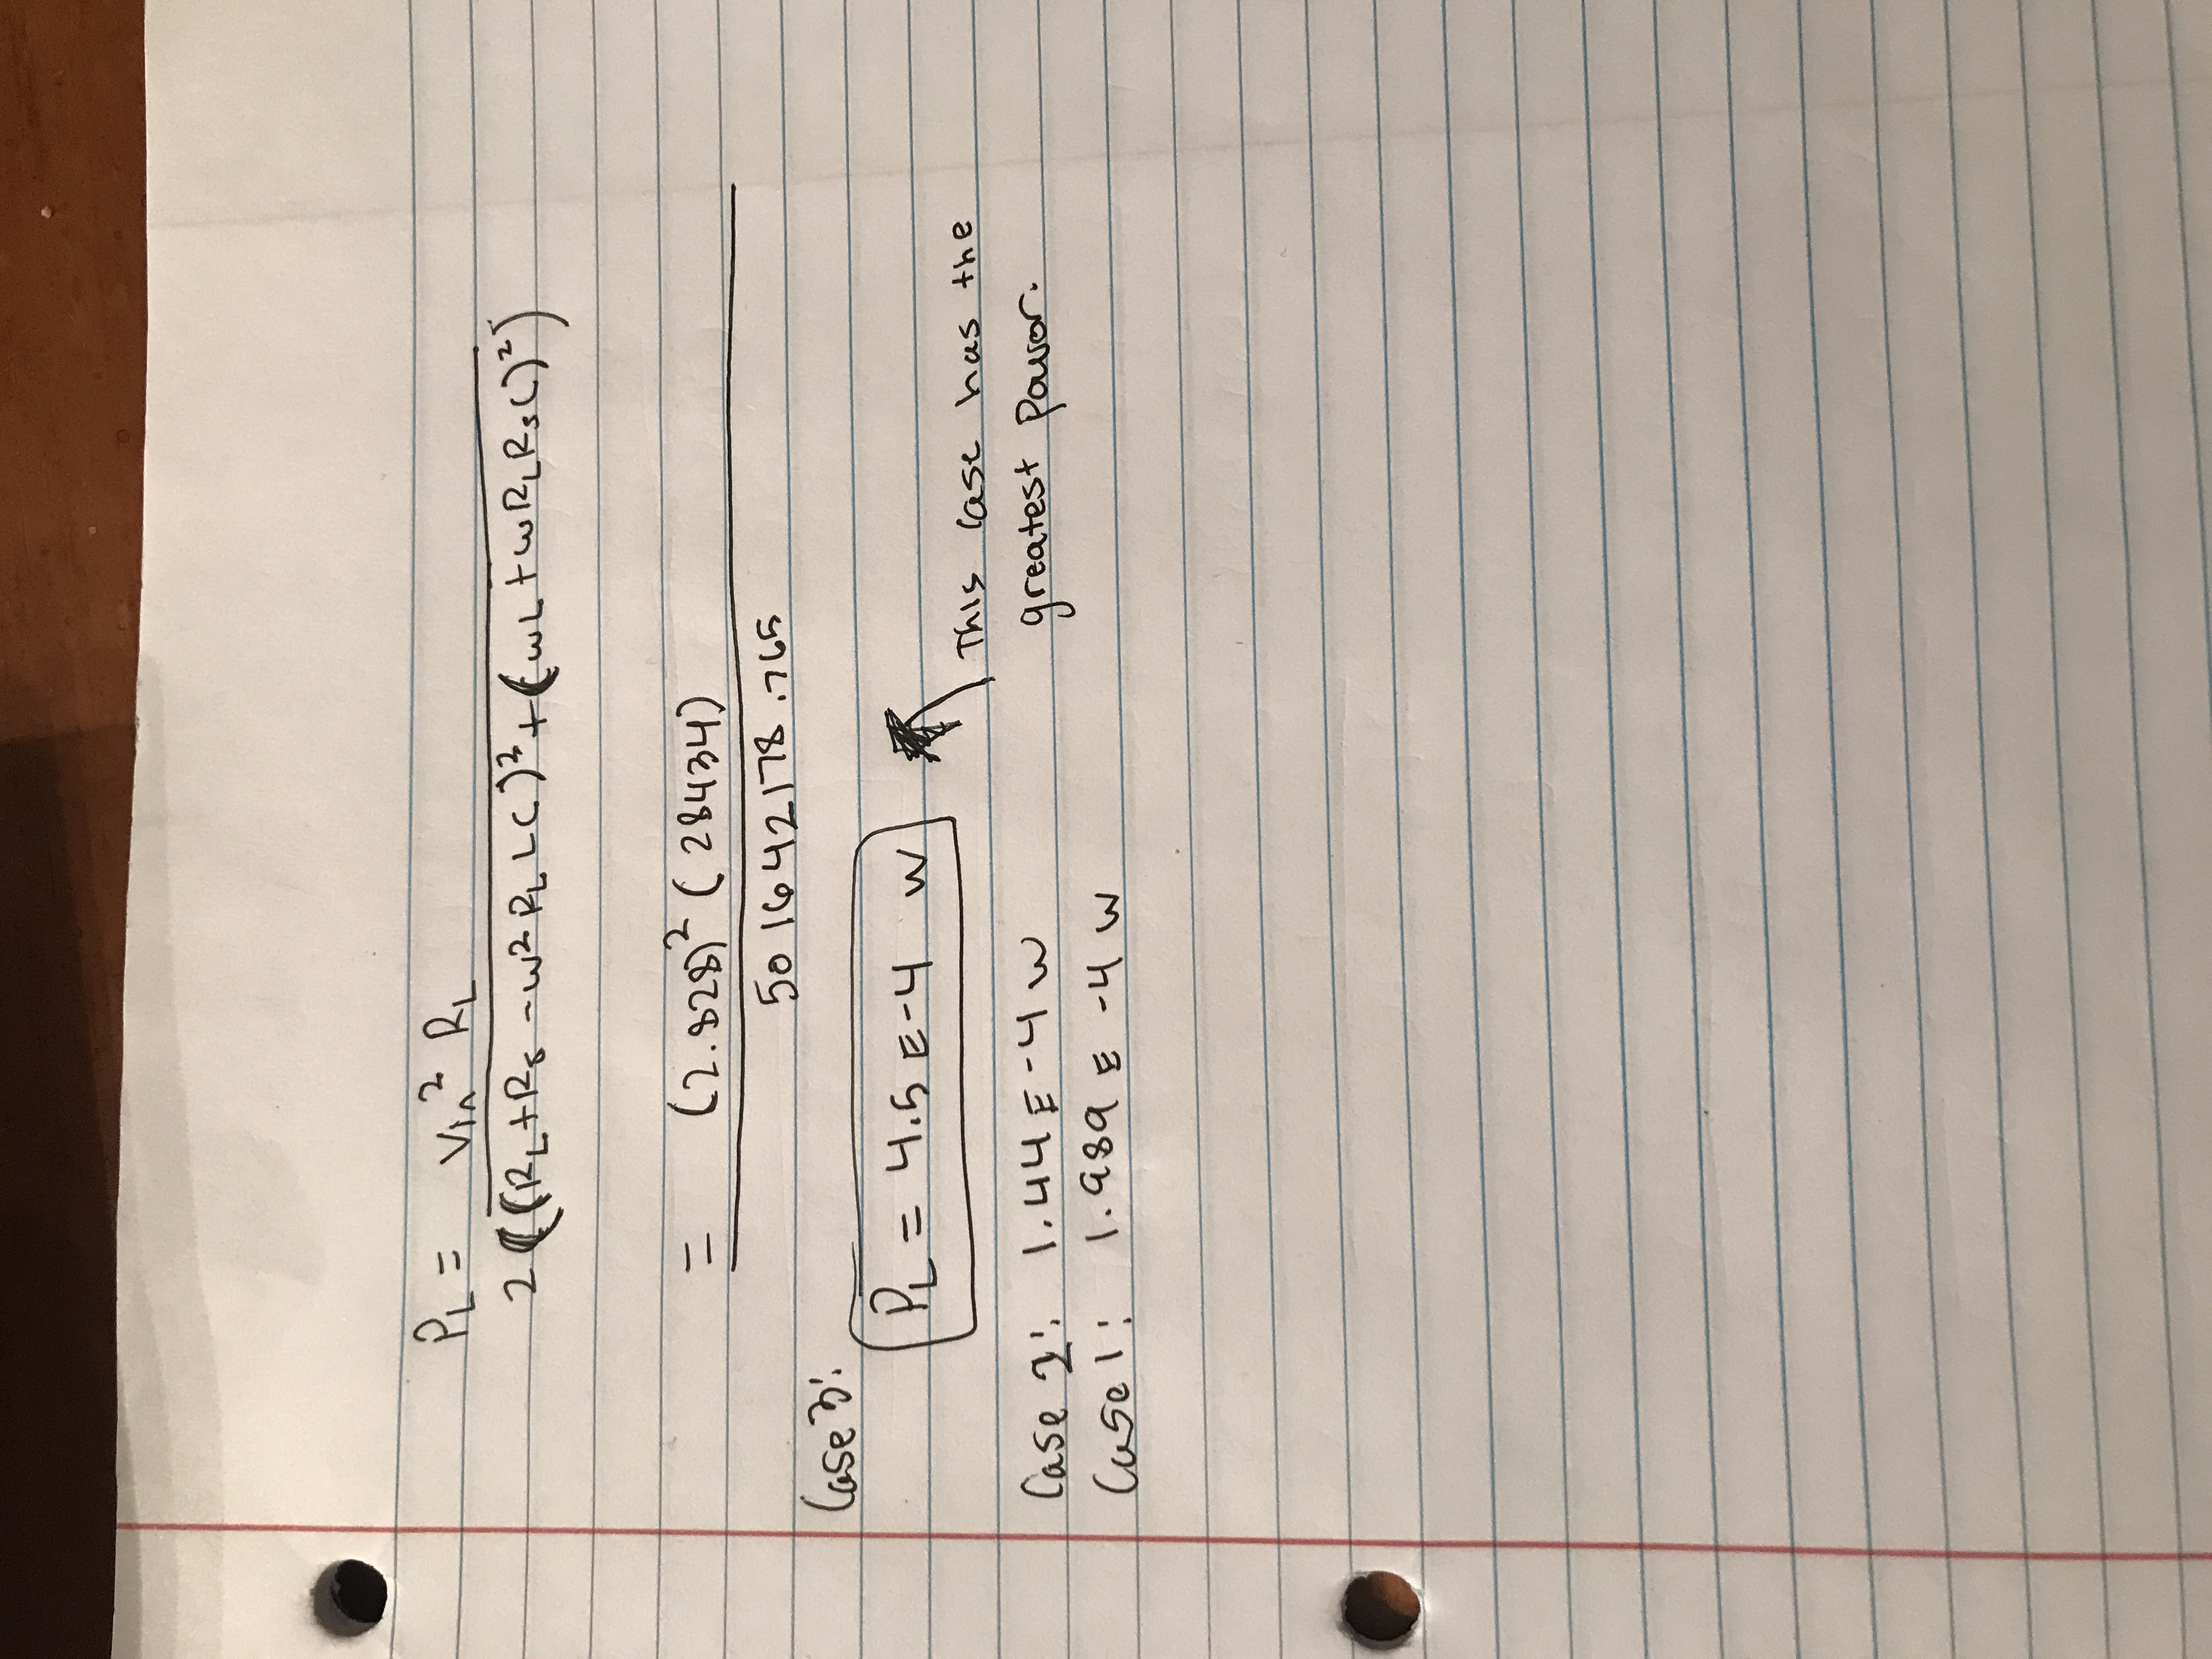 P_L = Vin² R_L
2((R_L+R_s -w² R_L LC)²+(wL+wR_LR_sC)²)
= (2.828)² (28434)
501642178.765
Case 3:
P_L = 4.5 E-4 W
This case has the
greatest Power.
Case 2: 1.44 E-4 W
Case 1: 1.989 E -4 W